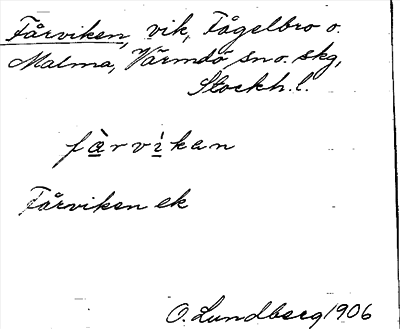 Fårviken, vik, Fågelbro o.
Malma, Värmdö sn o. skg,
Stockh. l.
fàrvìkan
Fårviken ek
O. Lundberg 1906